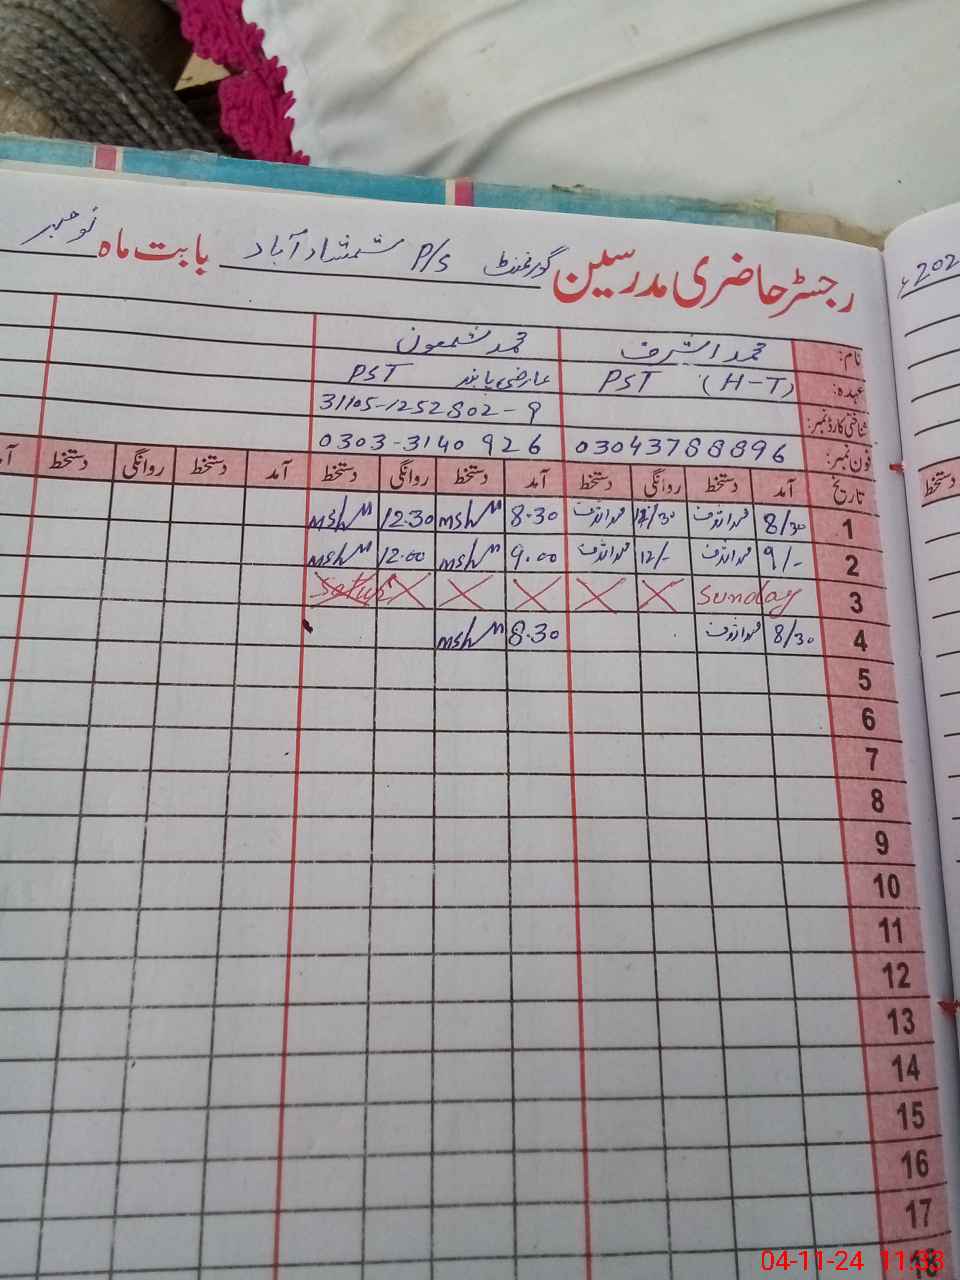 رجسٹر حاضری مدرسین گورنمنٹ P/S شمشاد آباد بابت ماہ نومبر
202
نام: محمد اشرف محمد شمعون
عہدہ: PST (H-T) عارضی پابند PST
شناختی کارڈ نمبر: 31105-1252802-9
فون نمبر: 03043788896 0303-3140926
تاریخ آمد دستخط روانگی دستخط آمد دستخط روانگی دستخط آمد دستخط روانگی دستخط آ
دستخط
1 8/30 محمد اشرف 12/30 محمد اشرف 8.30 12.30
2 9/- محمد اشرف 12/- محمد اشرف 9.00 12.00
3 Sunday
4 8/30 محمد اشرف 8.30
5
6
7
8
9
10
11
12
13
14
15
16
17
18
04-11-24 11:33